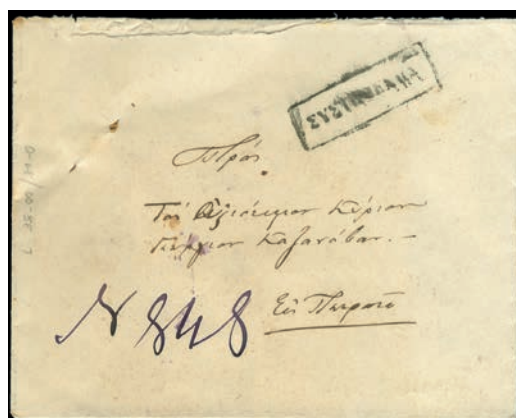 ΣΥΣΤΗΜΕΝΑ
Πρὸς
Τὸν Ἀξιότιμον Κύριον
Γεώργιον Καζανόβαν. —
Εἰς Πειραιᾶ
N 848